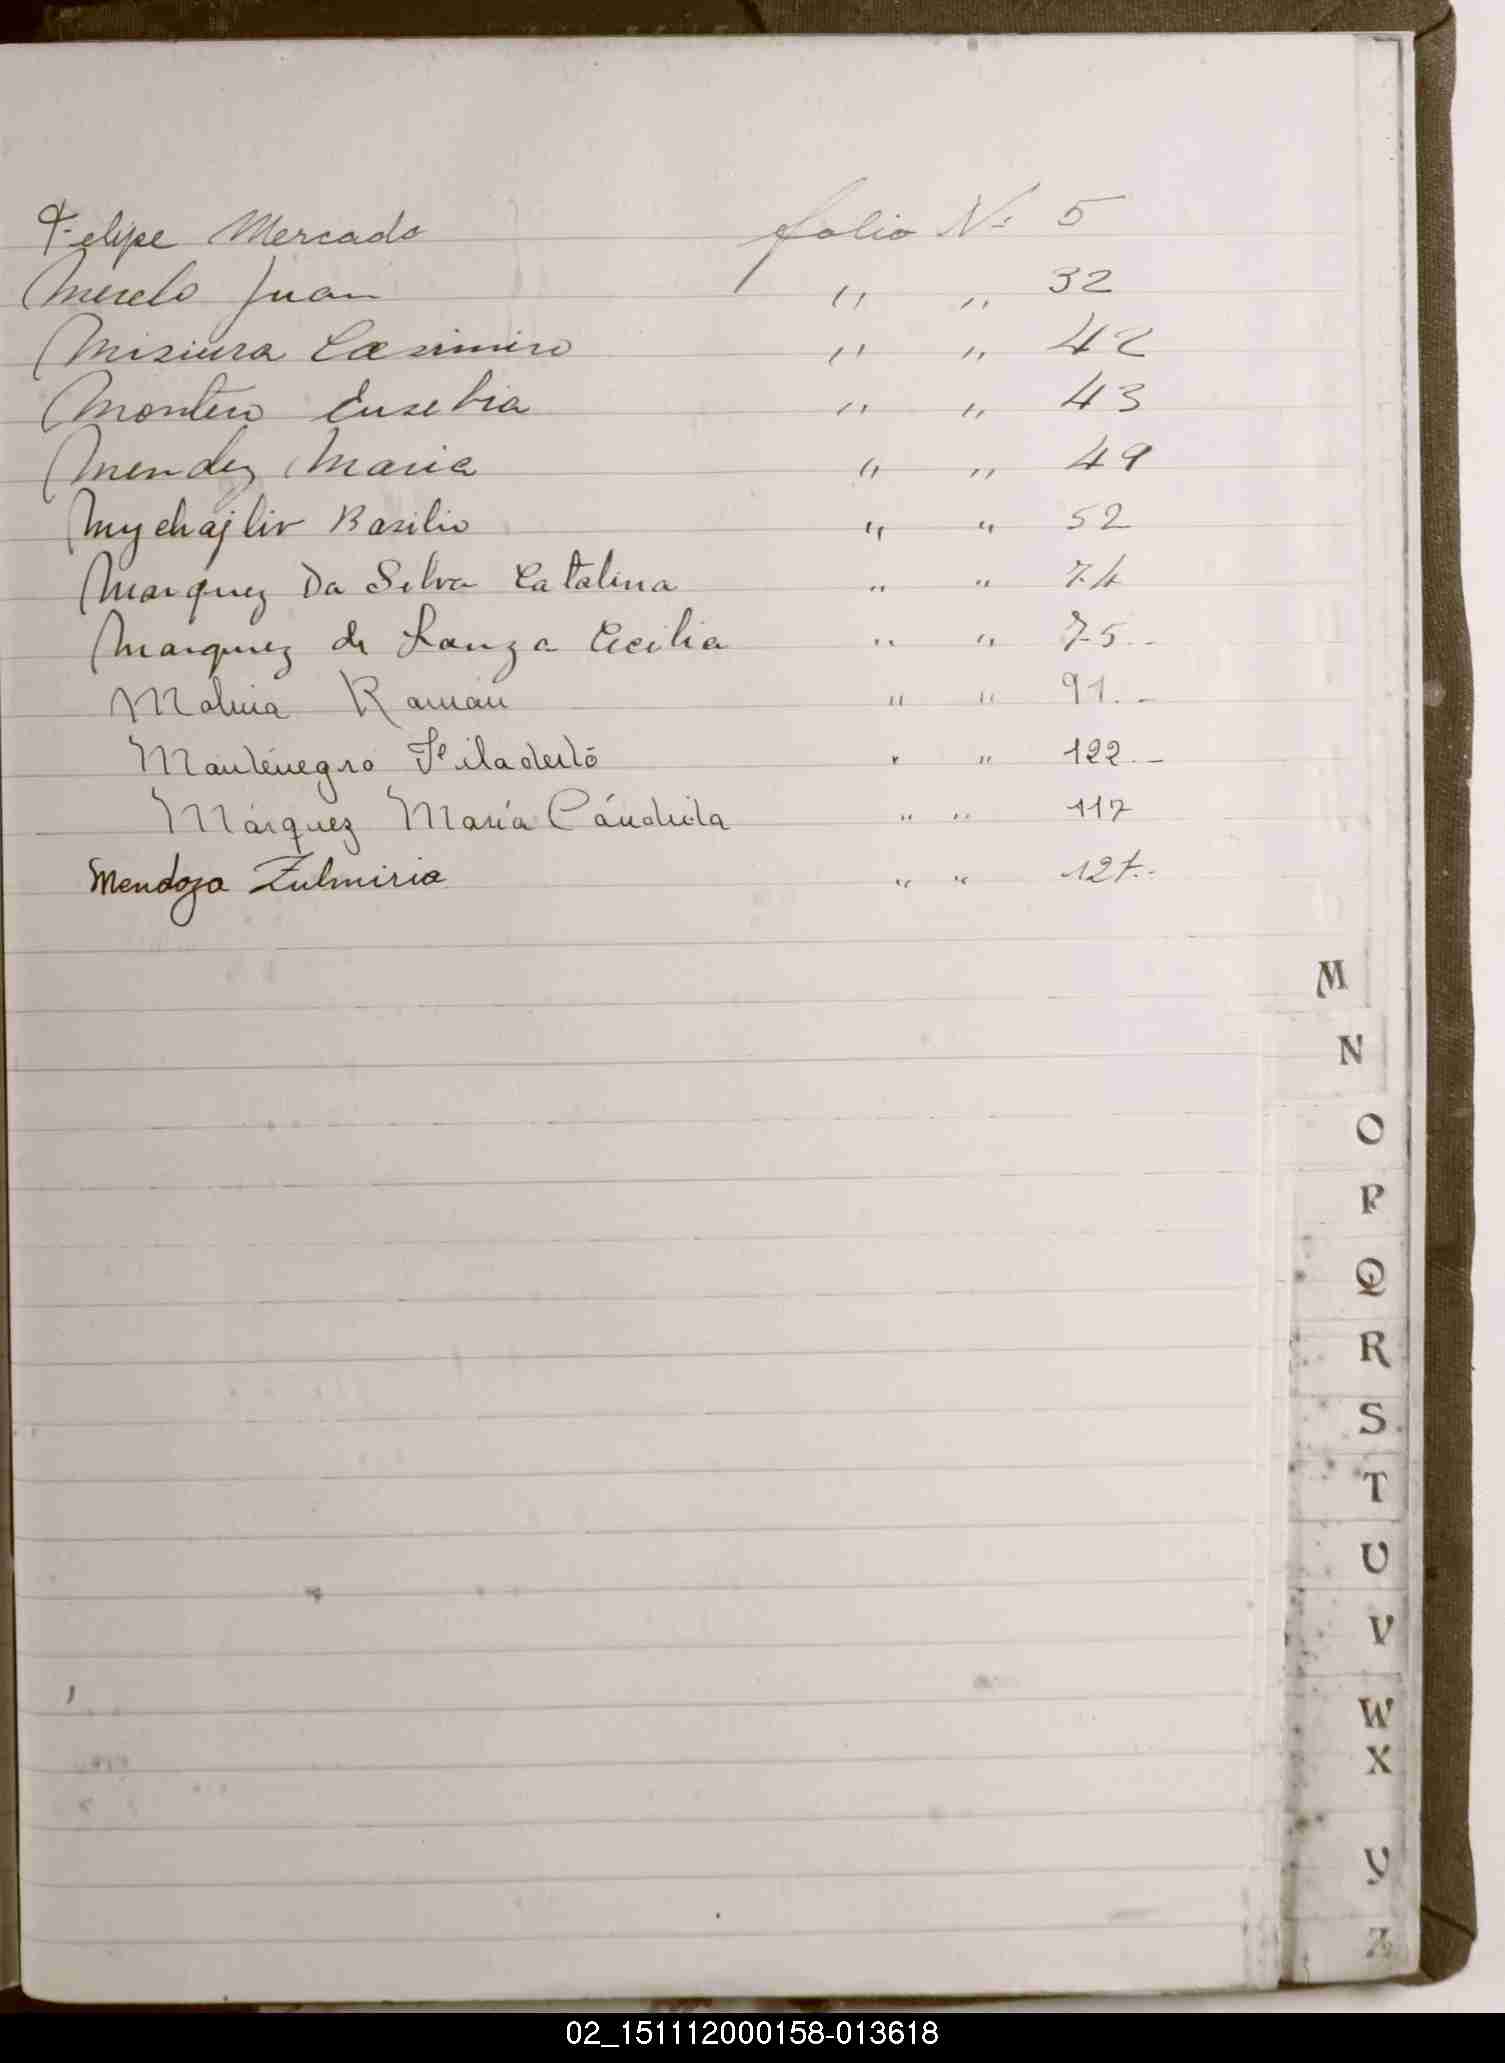 Felipe Mercado folio Nº 5
Merelo Juan " " 32
Misiura Casimiro " " 42
Montero Eusebia " " 43
Mendez Maria " " 49
Mychajliv Basilio " " 52
Marquez Da Silva Catalina " " 74
Marquez de Souza Cecilia " " 75.-
Molina Ramón " " 91.-
Montenegro Filadelfo " " 122.-
Márquez María Cándida " " 117
Mendoza Zulmiria " "
M
N
O
P
Q
R
S
T
U
V
W
X
Y
Z
02_151112000158-013618